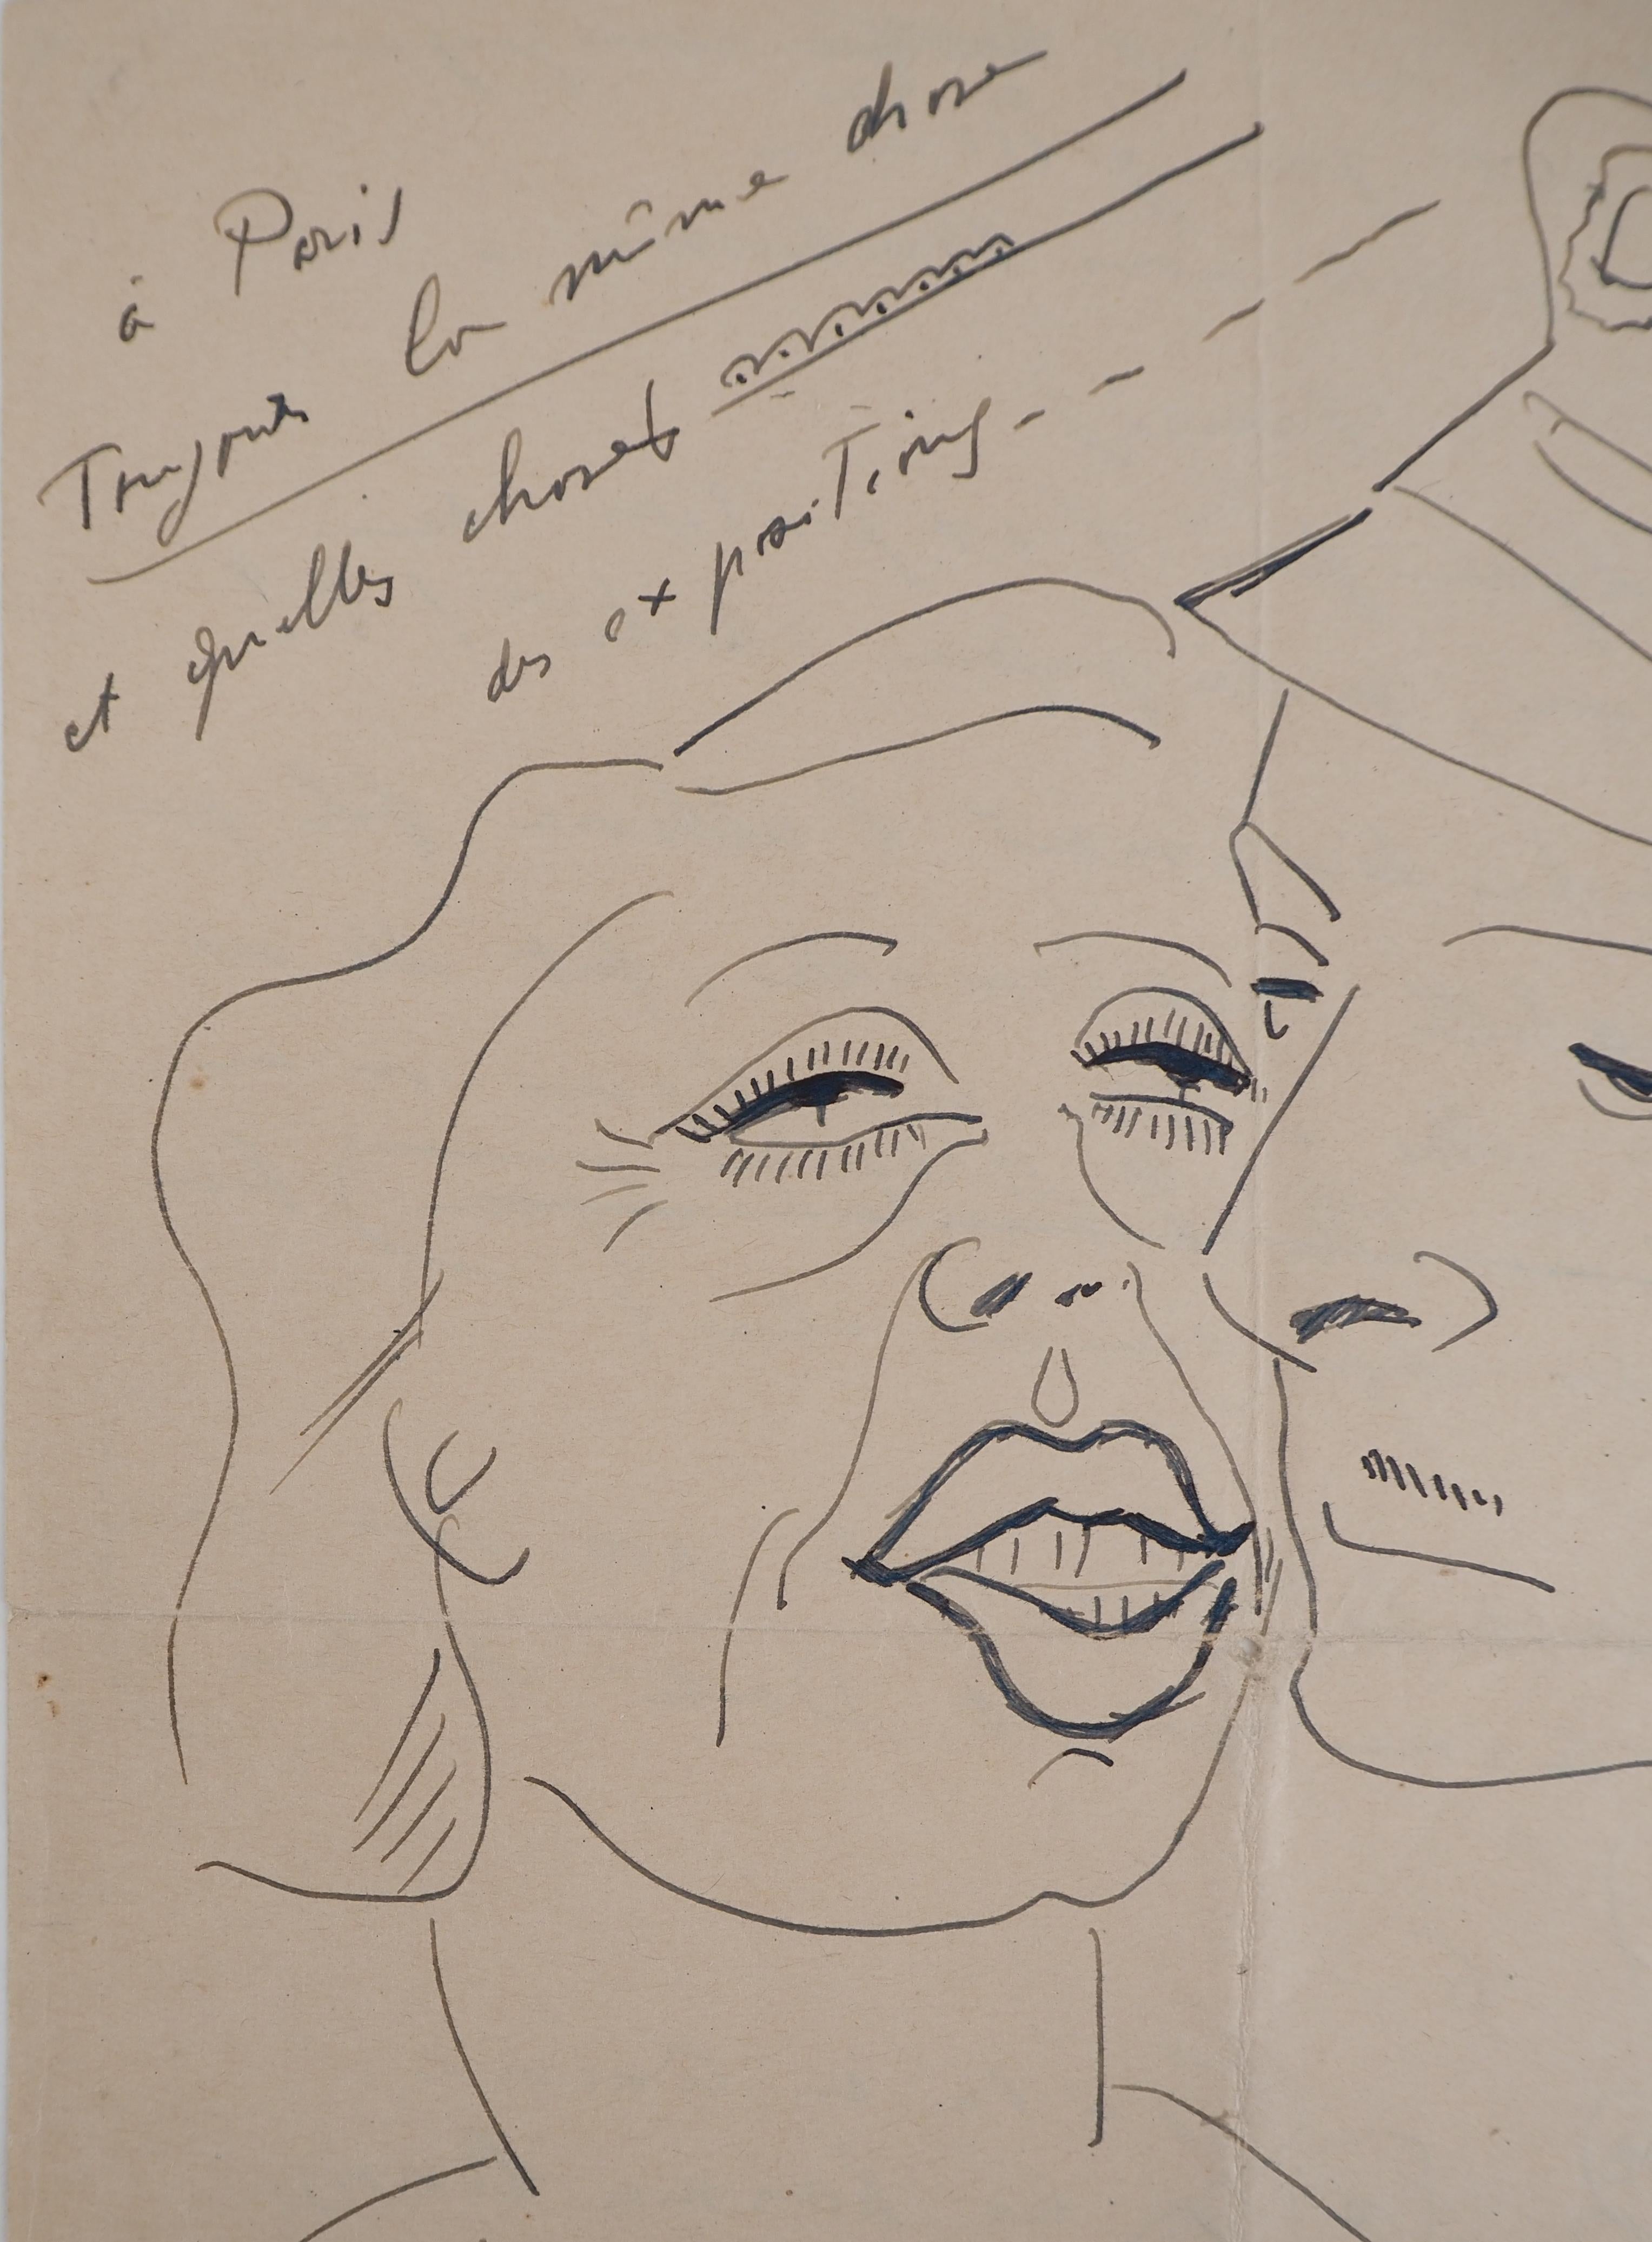 à Paris
Toujours la même chose
et quelles choses
des expositions - - - - -